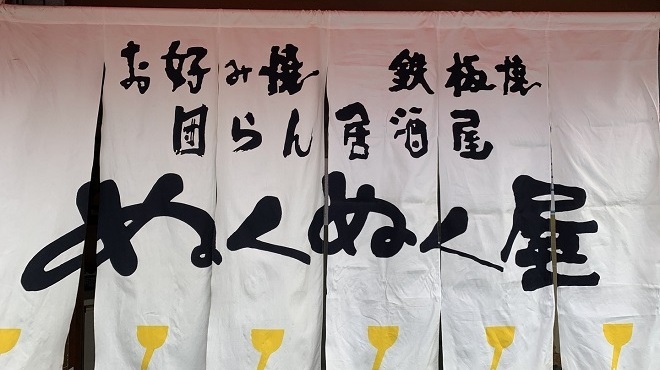 お好み焼 鉄板焼
団らん居酒屋
ぬくぬく屋